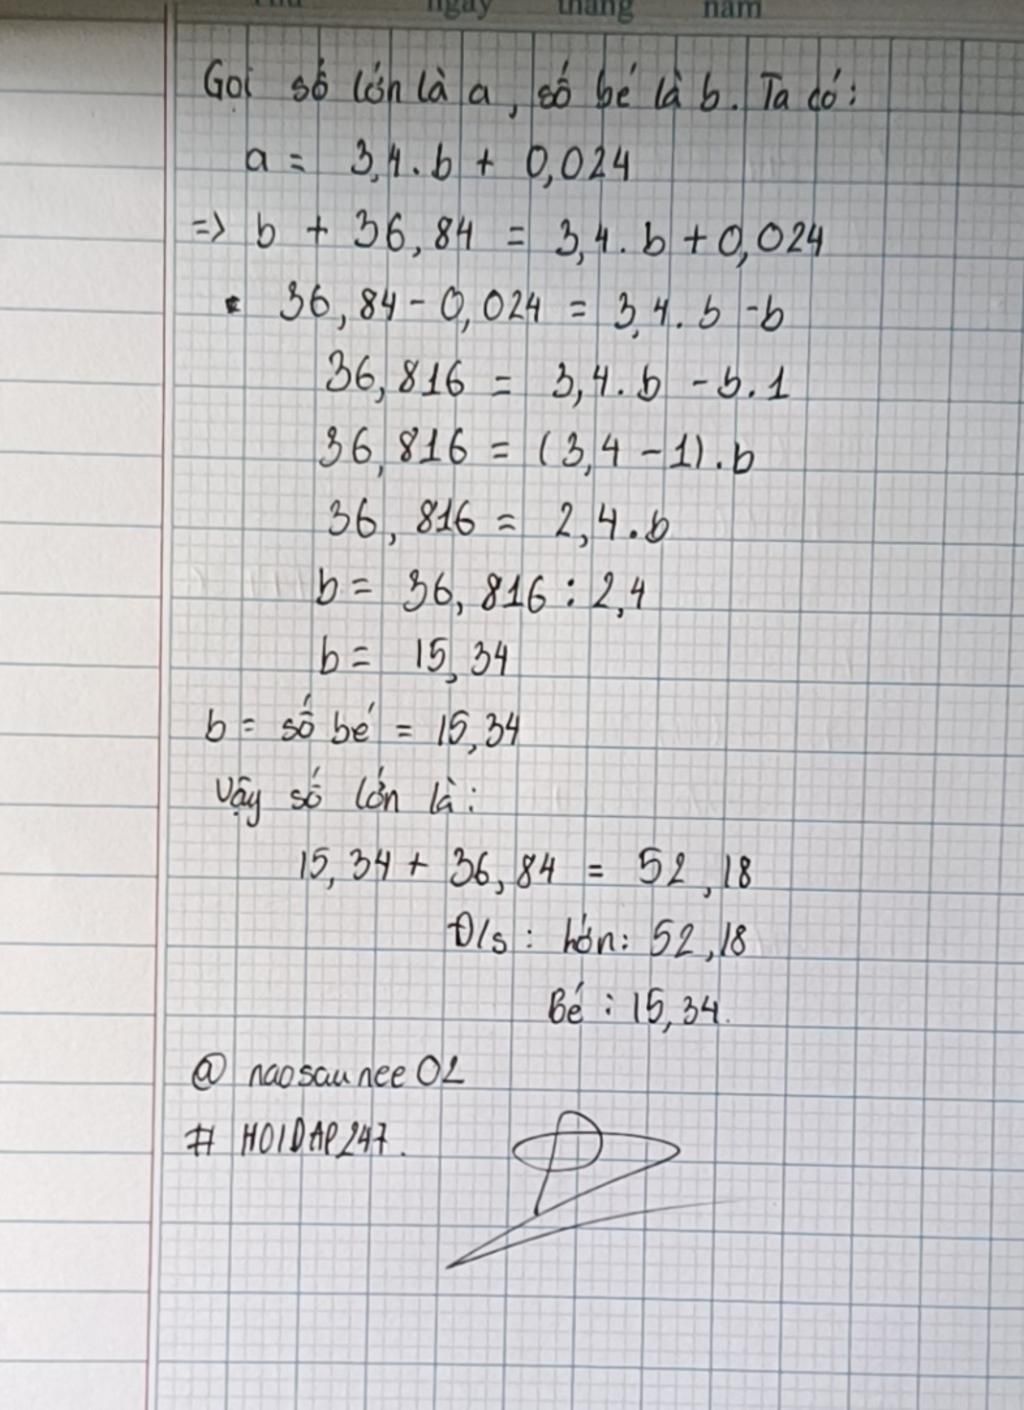 ngày tháng năm
Gọi số lớn là a, số bé là b. Ta có:
a = 3,4.b + 0,024
=> b + 36,84 = 3,4.b + 0,024
36,84 - 0,024 = 3,4.b - b
36,816 = 3,4.b - b.1
36,816 = (3,4 - 1).b
36,816 = 2,4.b
b = 36,816 : 2,4
b = 15,34
b = số bé = 15,34
Vậy số lớn là:
15,34 + 36,84 = 52,18
Đ/s: lớn: 52,18
Bé: 15,34.
@ naosaunee02
# HOIDAP247.